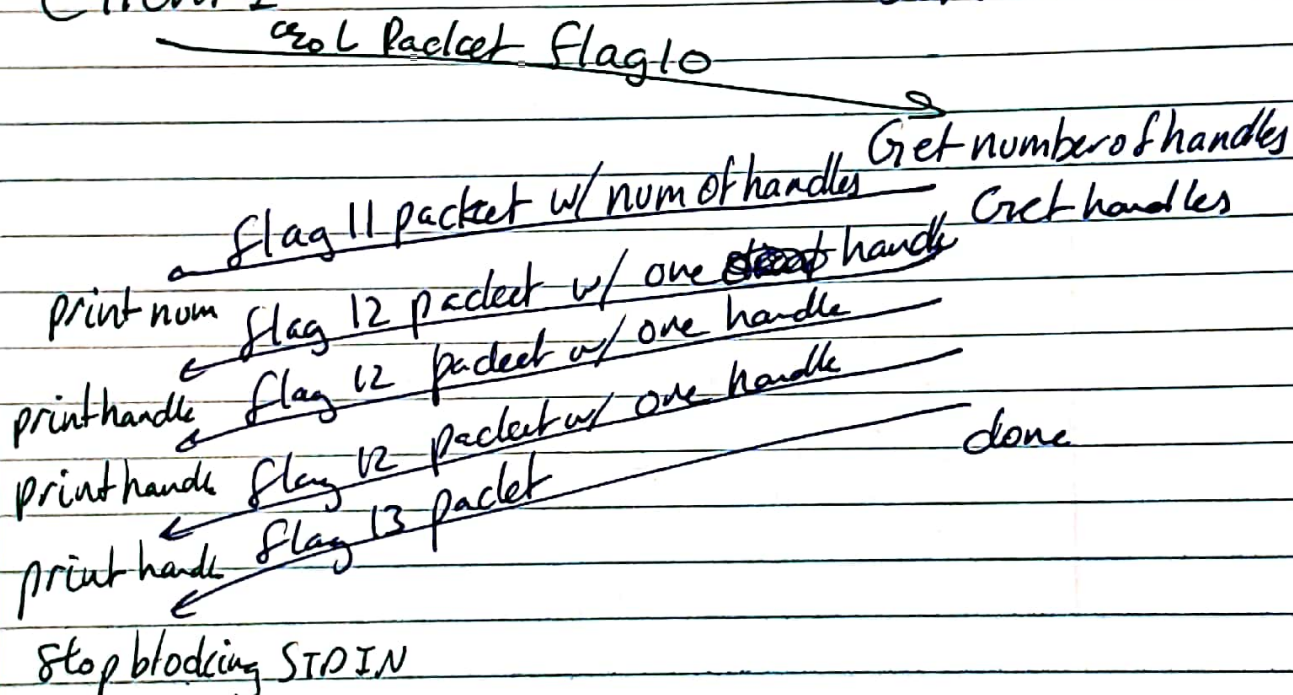 Client 1
%L Packet flag 10
Get number of handles
flag 11 packet w/ num of handles
Get handles
print num
flag 12 packet w/ one handle
print handle
flag 12 packet w/ one handle
print handle
flag 12 packet w/ one handle
done
print handle
flag 13 packet
Stop blocking STDIN